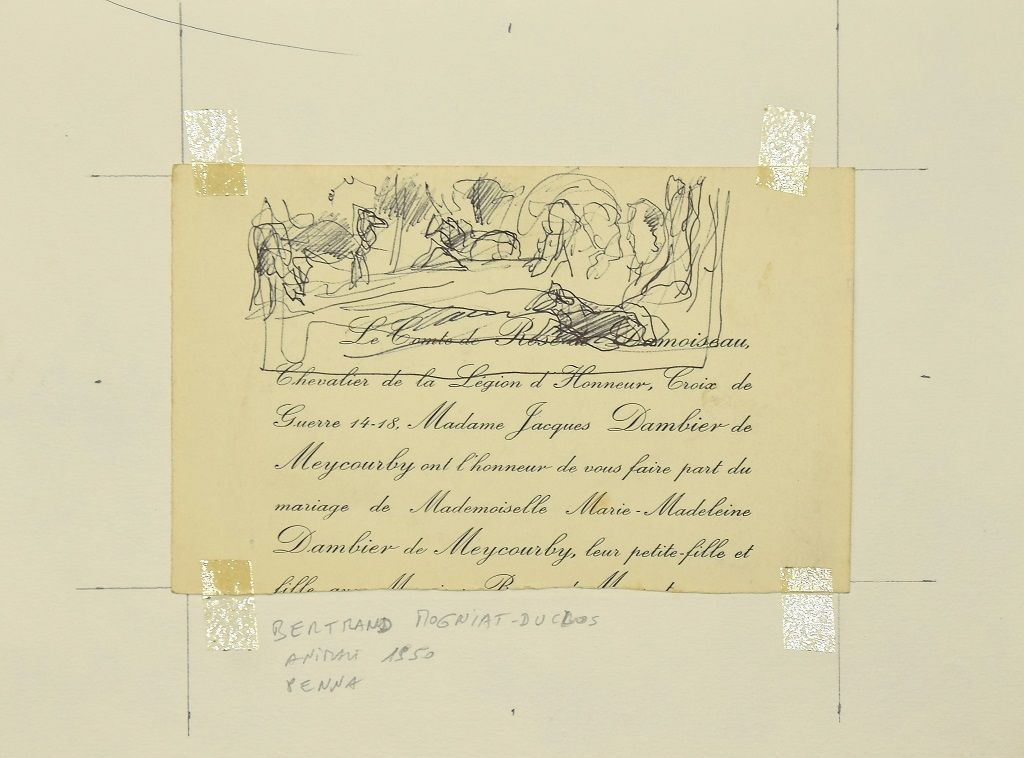 Le Comte de Rose de Damoiseau,
Chevalier de la Légion d'Honneur, Croix de
Guerre 14-18, Madame Jacques Dambier de
Meycourby ont l'honneur de vous faire part du
mariage de Mademoiselle Marie-Madeleine
Dambier de Meycourby, leur petite-fille et
fille
BERTRAND MOGNIAT-DUCLOS
ANIMALI 1950
PENNA